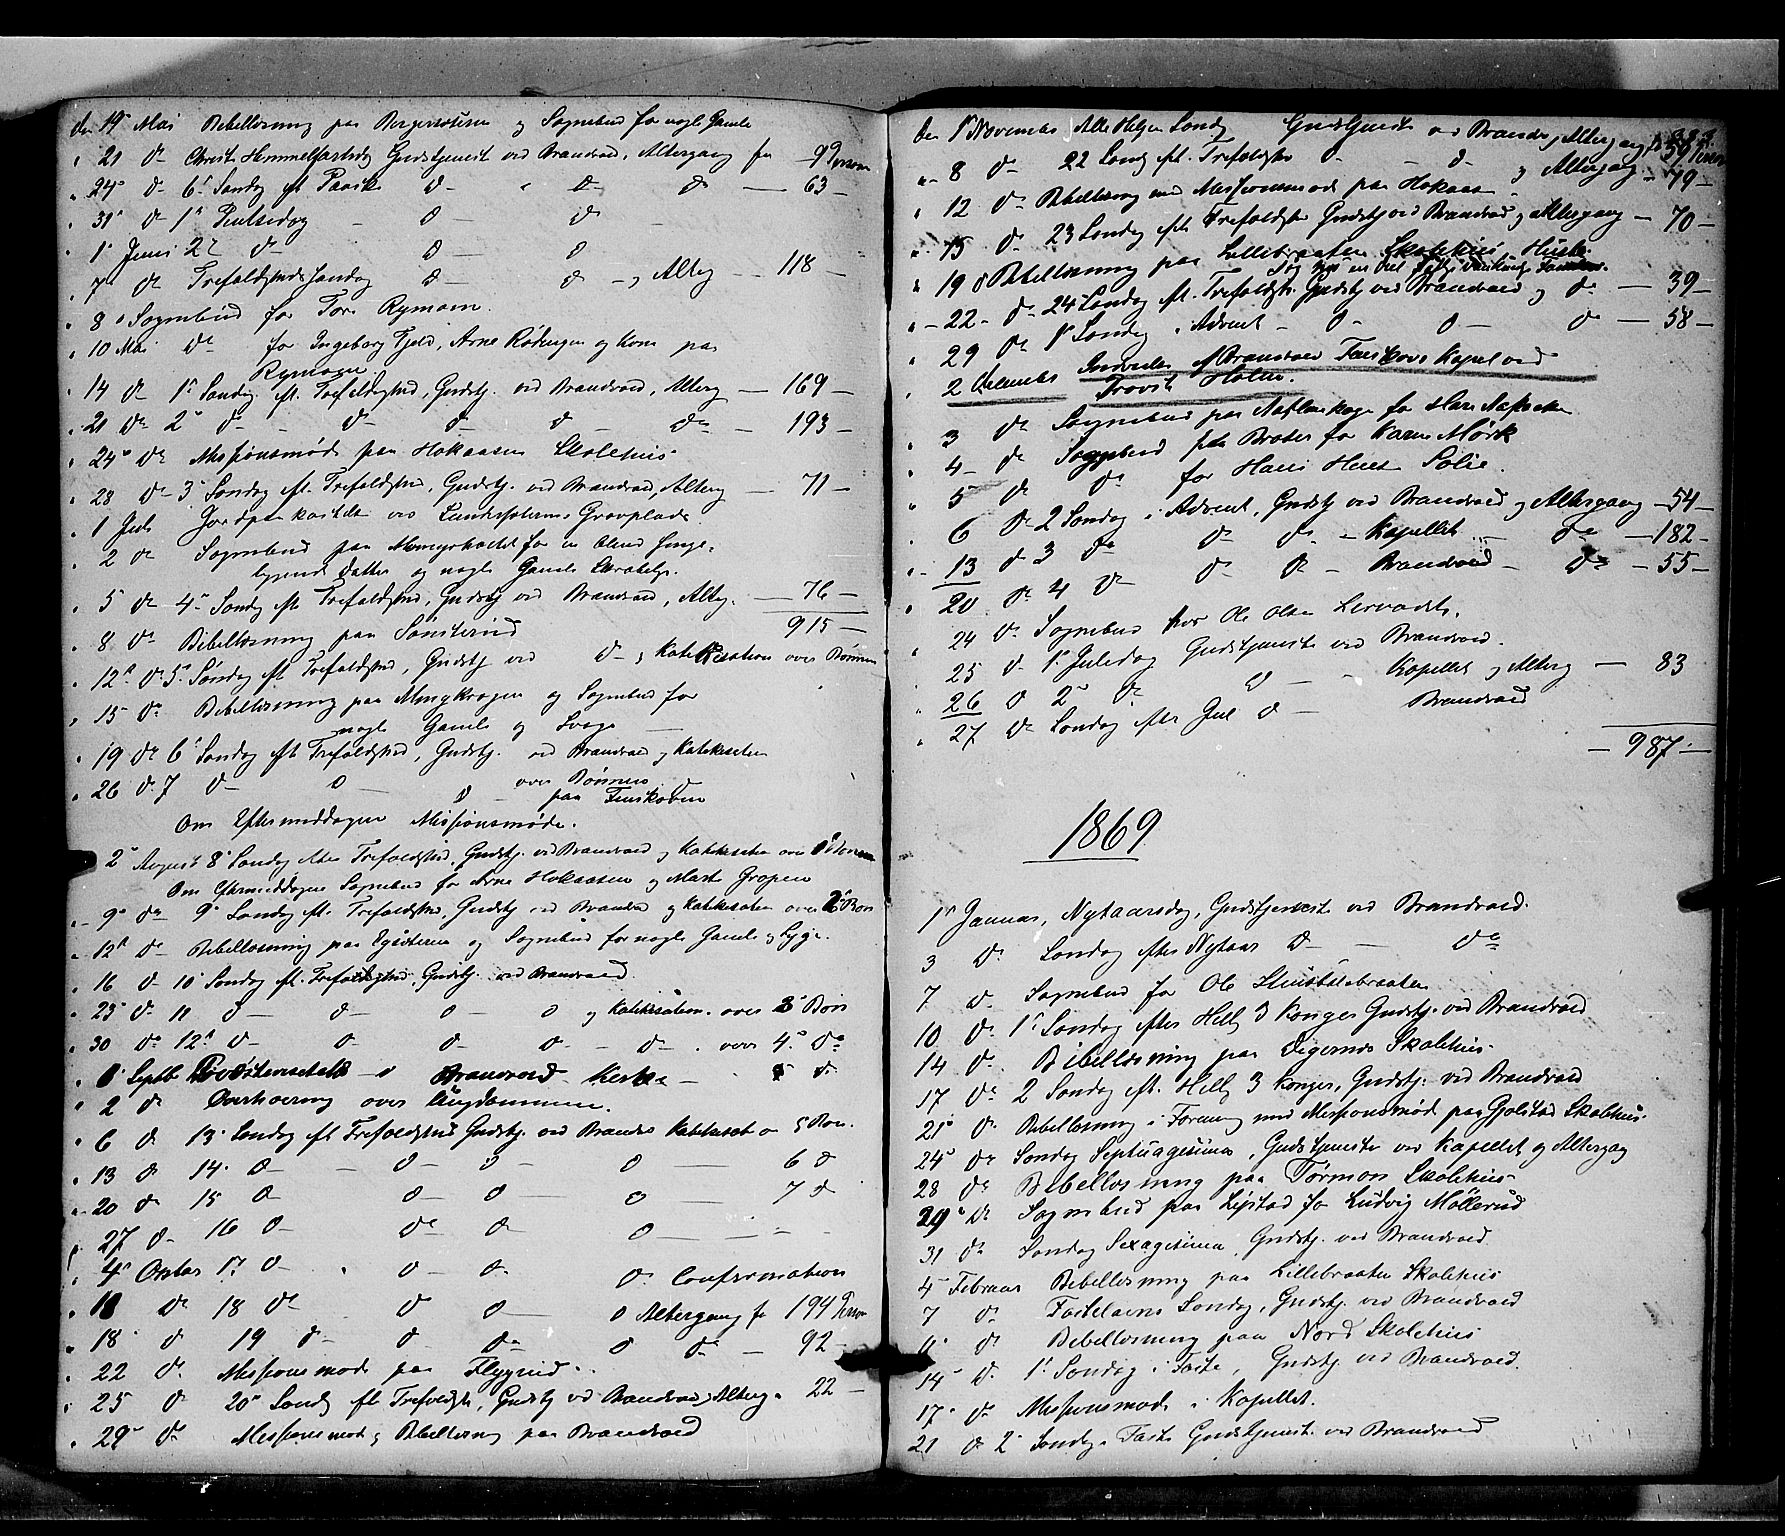 den 19 Mai Bibellæsning paa Bergersæteren og Sognebud for nogle Gamle
" 21 do Christi Himmelfartsdag Gudstjeneste ved Brandvold, Altergang for — 9 Personer
" 24 do 6 Søndag eft. Paaske do " do do — 63 —
" 31 do 1 Pintsedag — do — do
" 1 Juni 2 do do — do
" 7 do Trefoldigheds Søndag do do — og Alterg — 118 —
" 8 " Sognebud for Tore Rymoen.
" 10 Mai do for Ingeborg Fjeld, Arne Rødungen og Kone paa
Rymoen.
" 14 do 1 Søndag eft. Trefoldighed, Gudstj. ved Brandvold, Alterg — 169 —
" 21 do 2 do — do do do — do — 193 —
" 24 do Missionsmøde paa Hokaasen Skolehus
" 28 do 3 Søndag eft. Trefoldighed, Gudstj. ved Brandvold, Alterg — 71 —
" 1 Juli Jordpaakastelse ved Lundersæterens Gravplads
" 2 do Sognebud paa for en blind Senge=
liggende Datter og nogle Gamle Skrøbelige.
" 5 do 4 Søndag eft Trefoldighed, Gudstj ved Brandvold, Alterg. — 76 —
915 —
" 8 do Bibellæsning paa Sønsterud
" 12 do 5 Søndag eft Trefoldighed, Gudstj ved do — og Katekisation over Børnene
" 15 do Bibellæsning paa Mengkrogen og Sognebud for
nogle Gamle og Svage —
" 19 do 6 Søndag eft Trefoldighed, Gudstj. ved Brandvold og Katekisation
over Børnene
" 26 do 7 do — do — do — paa Finskoven
Om Eftermiddagen Missionsmøde.
" 2 August 8 Søndag efter Trefoldighed, Gudstj. ved Brandvold og Katekisation over Børnene
Om Eftermiddagen Sognebud for Arne Hokaasen og Marte Gropen
" 9 do 9 Søndag eft. Trefoldighed, Gudstj ved Brandvold og Katekisation over 2 Bøn
" 12 do Bibellæsning paa og Sognebud for nogle Gamle og Syge.
" 16 do 10 Søndag eft. Trefoldighed, Gudstj. ved Brandvold
" 23 do 11 do — do — do — do og Katekisation. over 3 Bøn
" 30 do 12 do — do do do — do — . over 4 do
" 1 Septb Provstevisitats i Brandvold Kirke —
" 2 do Overhøring over Ungdommen.
" 6 do 13 Søndag eft Trefoldighed Gudstj. ved Brandv Katekisat o 5 Bøn.
" 13 do 14 do — — do — do — do — 6 do
" 20 do 15 do — do — do — do — 7 do
" 27 do 16 do — do do — do — — —
" 4 Octob 17 do — " do — do — do Confirmation
" 11 do 18 do do do — do Altergang for 194 Person
" 18 do 19 do — do do do do — 92 —
" 22 do Missionsmøde paa Flygind.
" 25 do 20 Sønd eft Trefoldigh, Gudstj ved Brandvold, Alterg. 22 —
" 29 do Missionsmøde og Bibellæsning paa Brandvold
den 1 November Alle Helgen Søndg Gudstjenst ved Brandv, Altergang for 59 Person
" 8 do 22 Sønd eft. Trefoldighe do — do — og Altergang — 79 —
" 12 do Bibellæsning med Missionsmøde paa Hokaas
" 15 do 23 Søndag eft Trefoldighe Gudstj ved Brandvold og Altergang — 70 —
" 19 do Bibellæsning paa Lillebraaten Skolehus
" 22 do 24 Søndag eft. Trefoldigh. Gudstj ved Brandvold og do — 39 —
" 29 do 1 Søndag i Advent — do — do — do — 58 —
" 2 December Indvielse af Brandvold Finskovs Kapel ved
Provst Holm.
" 3 do Sognebud paa for
" 4 do Sognebud paa Braten for Karen Mørk
" 5 do do for Hans Solie.
" 6 do 2 Søndag i Advent, Gudstj ved Brandvold og Altergang — 54 —
" 13 do 3 do do do — Kapellet — do — 182 —
" 20 do 4 do do do — Brandvold — do — 55 —
" 24 do Sognebud hos Ole Olsen
" 25 do 1 Juledag Gudstjeneste ved Brandvold.
" 26 do 2 do do — Kapellet og Alterg — 83
" 27 do Søndag efter Jul do — Brandvold
— 987 —
1869
1 Januar, Nytaarsdag, Gudstjeneste ved Brandvold.
3 do Søndag efter Nytaar do — do
7 do Sognebud for Ole
10 do 1 Søndag efter Hellg 3 Konger Gudstj. ved Brandvold
14 do Bibellæsning paa Digernes Skolehus
17 do 2 Søndag eft. Hellg 3 Konger, Gudstj. ved Brandvold
21 do Bibellæsning i Forening med Missionsmøde paa Gjølstad Skolehus.
24 do Søndag Septuagesima, Gudstjeneste ved Kapellet og Altergag
28 do Bibellæsning paa Tørmoen Skolehus
29 do Sognebud paa Lystad for Ludvig Møllerud
31 do Søndag Sexagesima, Gudstj. ved Brandvold
4 Februar Bibellæsning paa Lillebraaten Skolehus
7 do Fastelavns Søndag, Gudstj. ved Brandvold
11 do Bibellæsning paa Nord Skolehus
14 do 1 Søndag i Faste, Gudstj ved Brandvold.
17 do Missionsmøde i Kapellet.
21 do 2 Søndag i Faste Gudstjenest. ved Brandvold